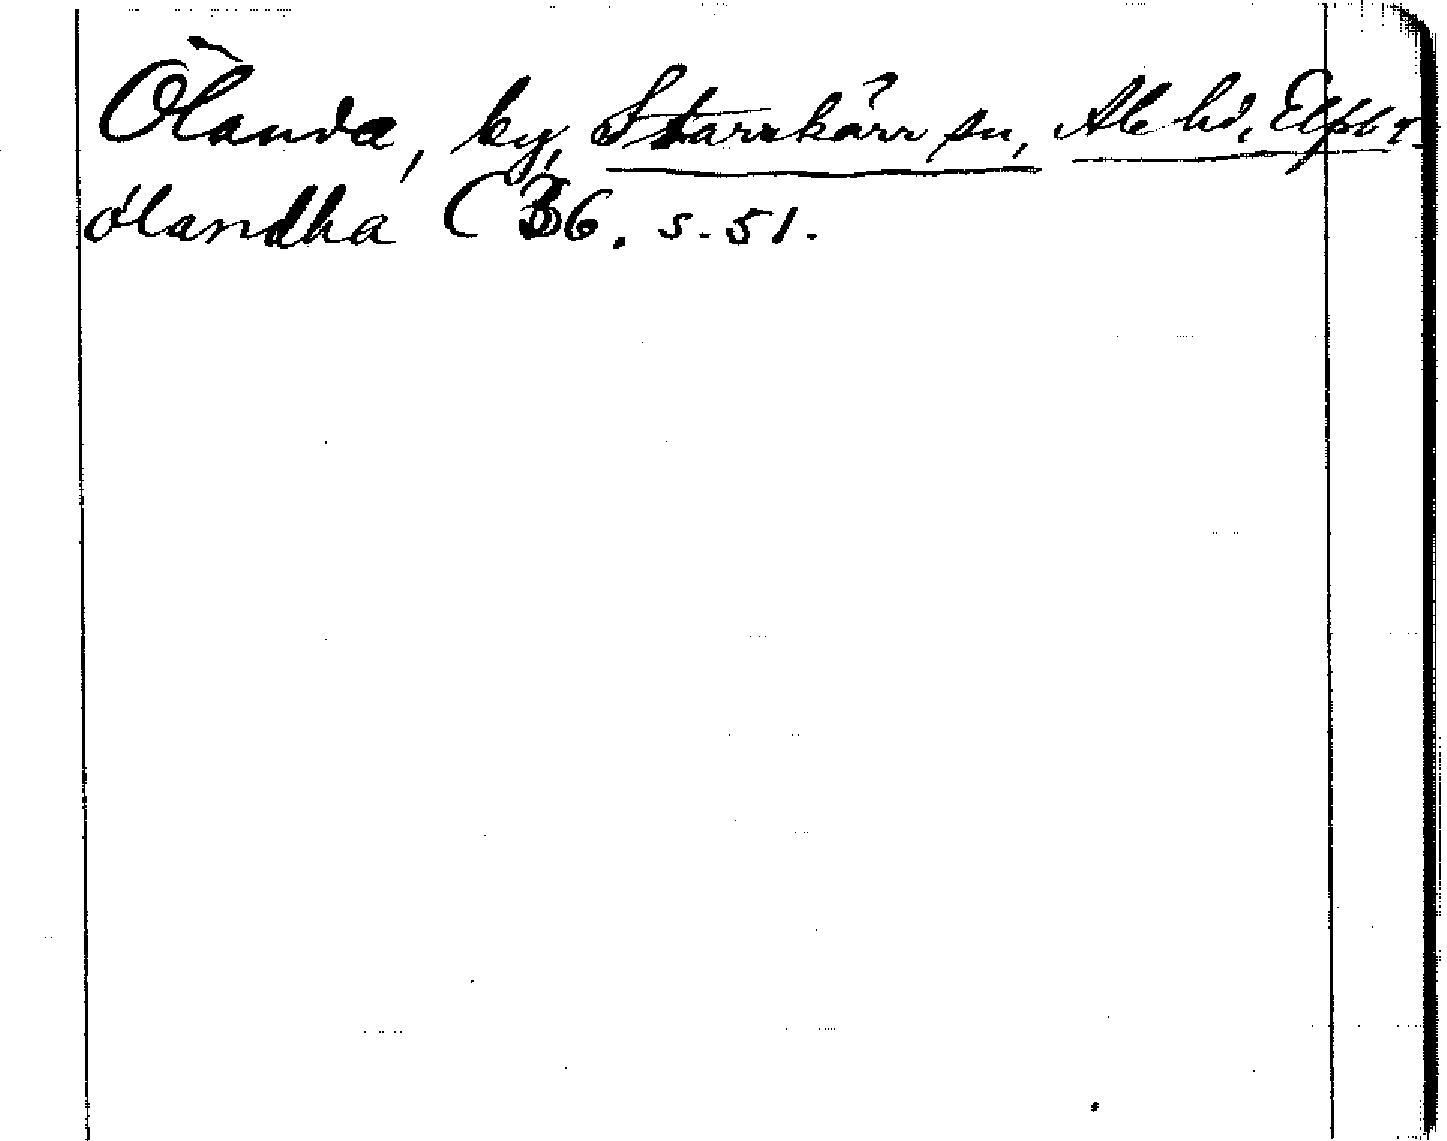 Ölanda, by, Starrkärr sn, Ale hd, Elfsb l.
ólandha (B6. s. 51.